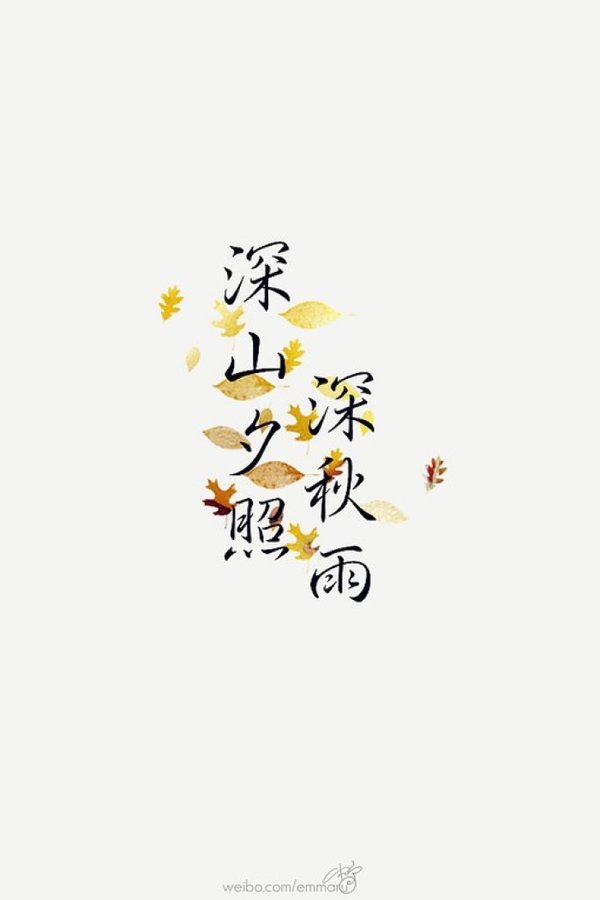 深山夕照
深秋雨
weibo.com/emmaru